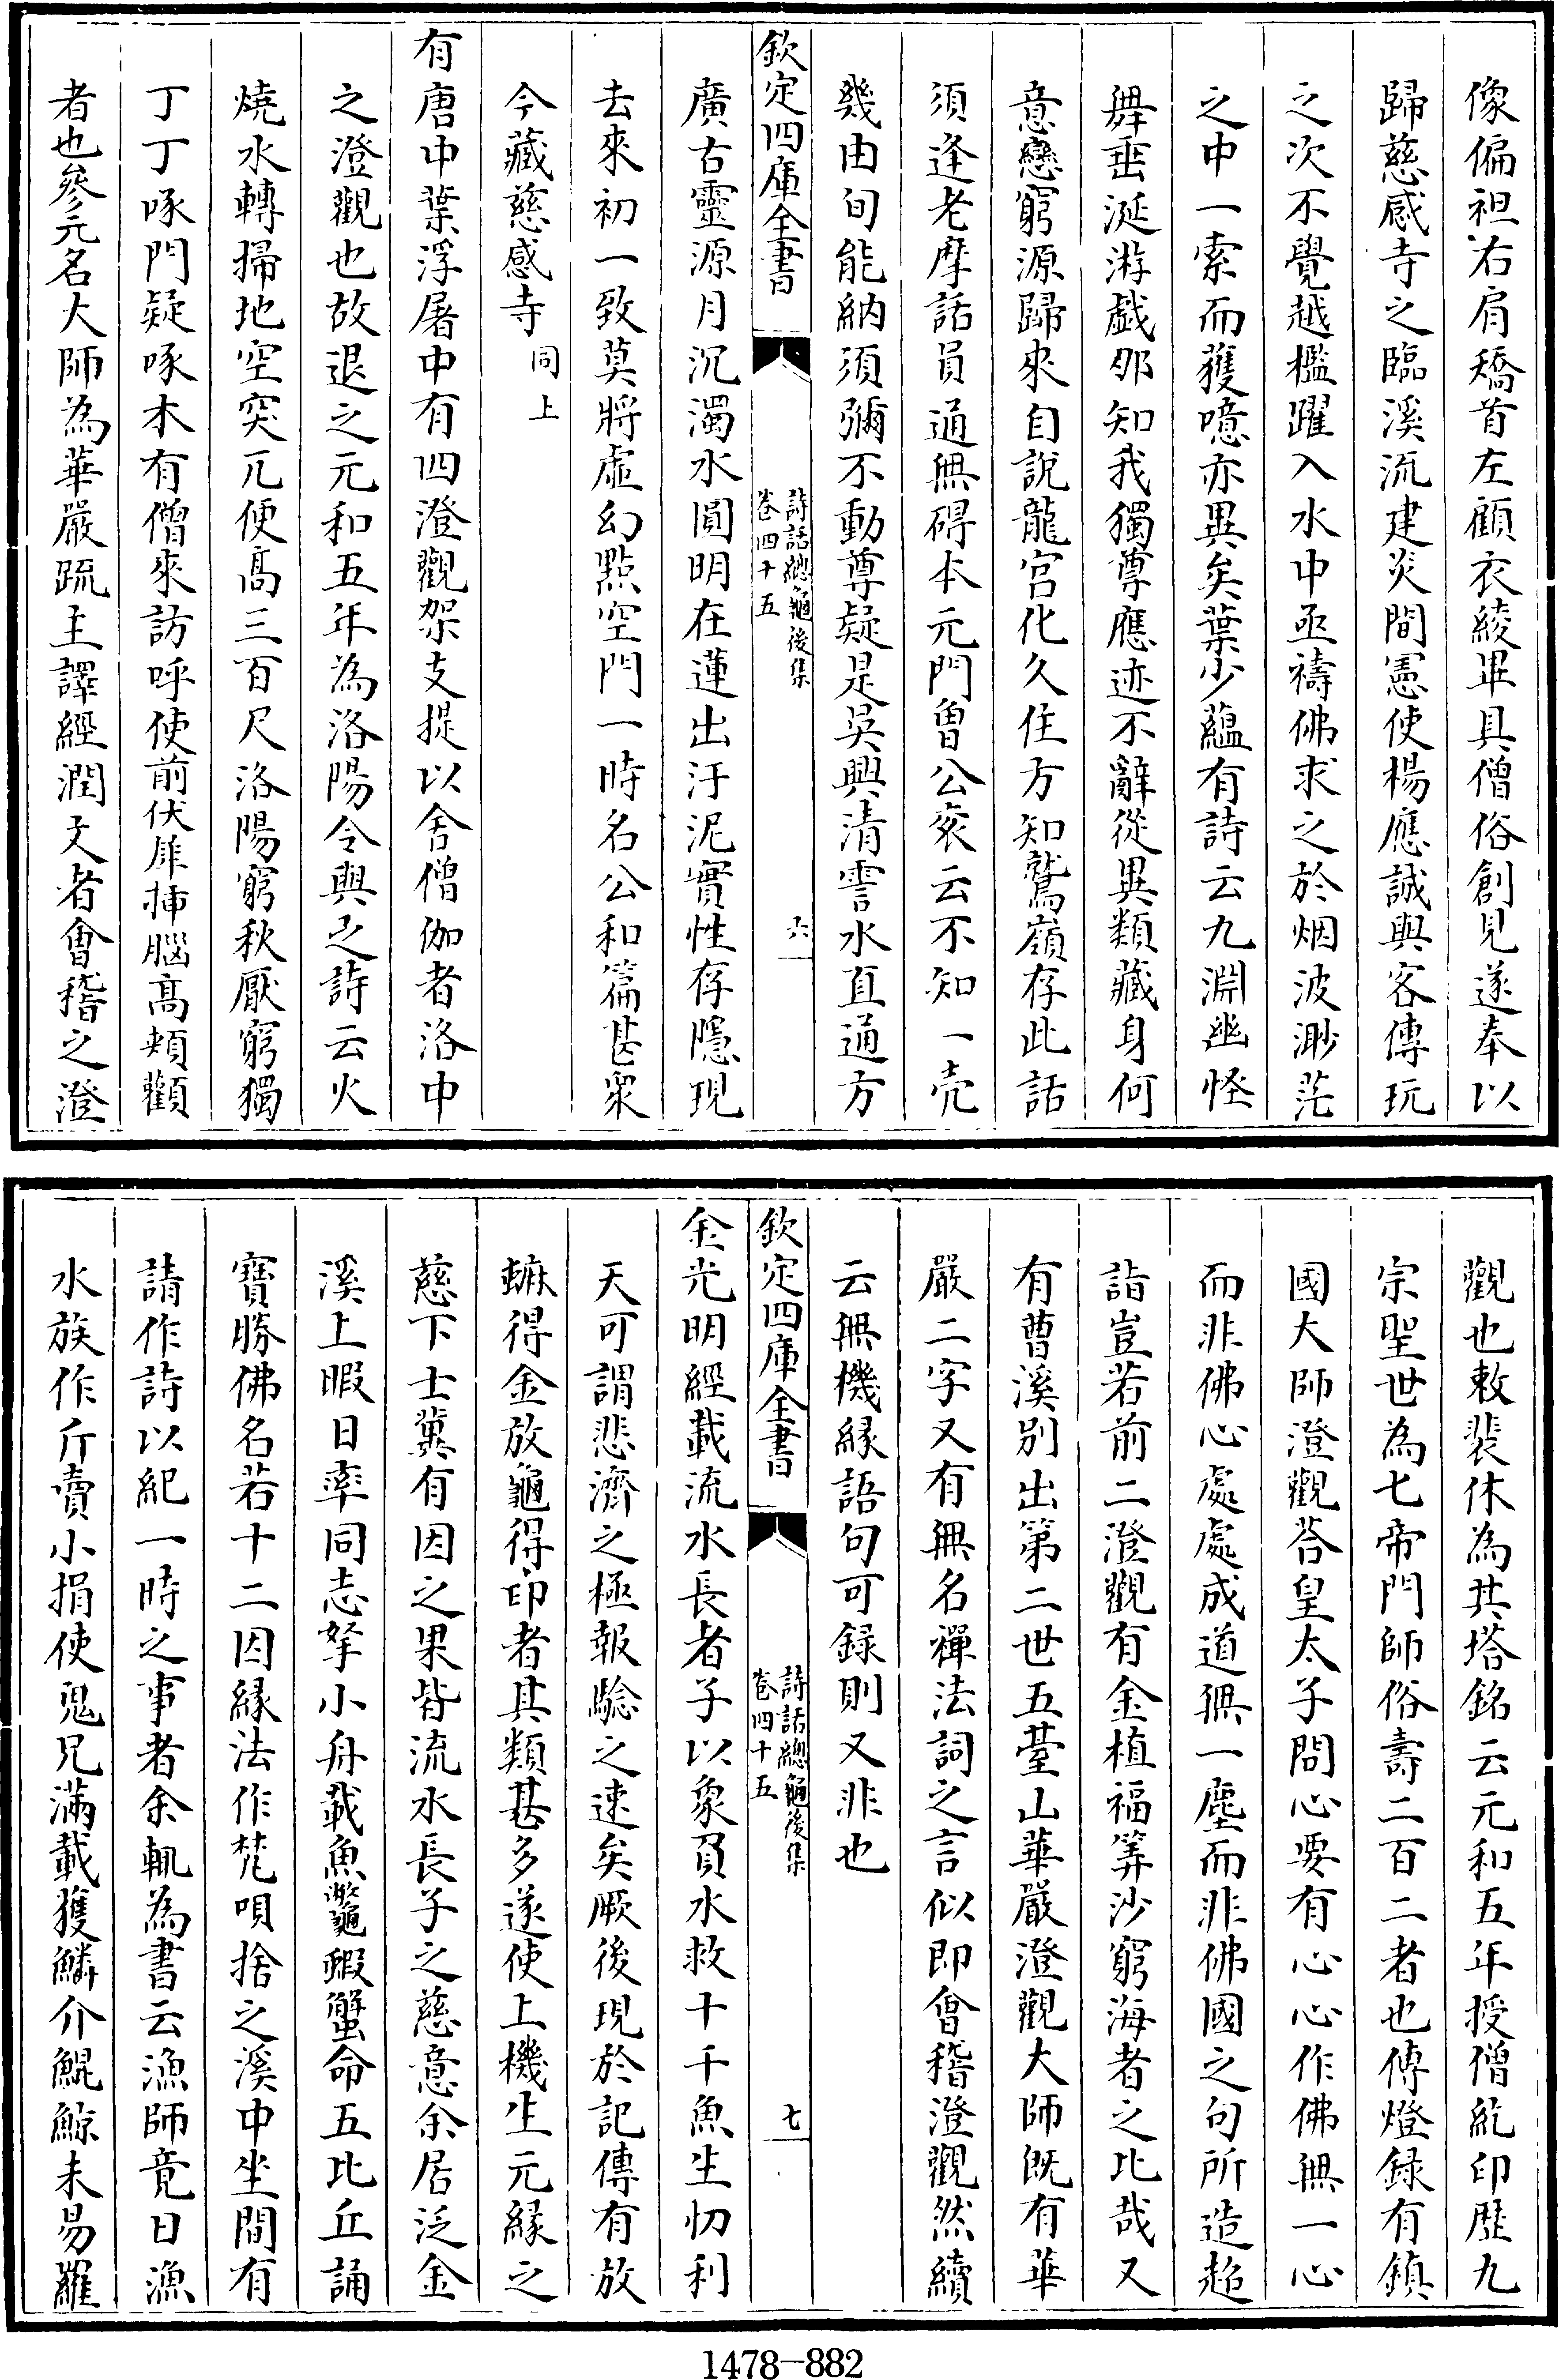 像偏袒右肩矯首左顧衣綾畢具僧俗創見遂奉以
歸慈感寺之臨溪流建炎間憲使楊應誠與客傳玩
之次不覺越檻躍入水中亟禱佛求之於烟波渺茫
之中一索而獲噫亦異矣葉少蘊有詩云九淵幽怪
舞垂涎游戲那知我獨尊應迹不辭從異類藏身何
意戀窮源歸來自說龍宮化久住方知鷲嶺存此話
須逢老摩詰員通無碍本元門曾公衮云不知一壳
幾由旬能納須彌不動尊疑是吳興清霅水直通方
欽定四庫全書
詩話總龜後集
卷四十五
六
廣古靈源月沉濁水圓明在蓮出汙泥實性存隱現
去來初一致莫將虛幻點空門一時名公和篇甚衆
今藏慈感寺同上
有唐中葉浮屠中有四澄觀架支提以舍僧伽者洛中
之澄觀也故退之元和五年為洛陽令與之詩云火
燒水轉掃地空突兀便高三百尺洛陽窮秋厭窮獨
丁丁啄門疑啄木有僧來訪呼使前伏犀揷腦高頰顴
者也參元名大師為華嚴疏主譯經潤文者會稽之澄
觀也敕裴休為其塔銘云元和五年授僧統印歷九
宗聖世為七帝門師俗壽二百二者也傳燈録有鎮
國大師澄觀荅皇太子問心要有心心作佛無一心
而非佛心處處成道無一塵而非佛國之句所造趍
詣豈若前二澄觀有金植福筭沙窮海者之比哉又
有曹溪别出第二世五䑓山華嚴澄觀大師既有華
嚴二字又有無名禪法詞之言似即會稽澄觀然續
云無機縁語句可録則又非也
欽定四庫全書
詩話總龜後集
卷四十五
七
金光明經載流水長者子以象負水救十千魚生忉利
天可謂悲濟之極報驗之速矣厥後現於記傳有放
螹得金放龜得印者其類甚多遂使上機生元縁之
慈下士冀有因之果皆流水長子之慈意余居泛金
溪上暇日率同志拏小舟載魚鼈蝦蟹命五比丘誦
寶勝佛名若十二因縁法作梵唄捨之溪中坐間有
請作詩以紀一時之事者余輒為書云漁師竟日漁
水族作斤賣小捐使鬼兄滿載獲鱗介鯤鯨未易羅
1478-882